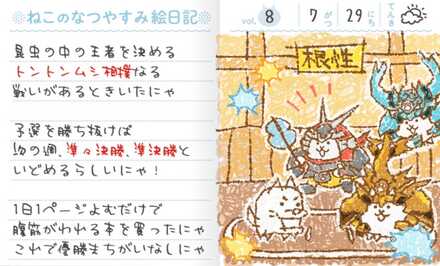 ねこのなつやすみ絵日記
vol. 8 7がつ 29にち てんき
昆虫の中の王者を決める
トントンムシ相撲なる
戦いがあるときいたにゃ
予選を勝ち抜けば
次の週、準々決勝、準決勝と
いどめるらしいにゃ!
1日1ページよむだけで
腹筋がわれる本を買ったにゃ
これで優勝まちがいなしにゃ
根性